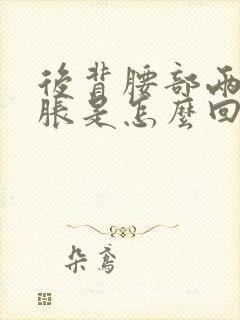 後背腰部兩
脹是怎麼回
朵鳶